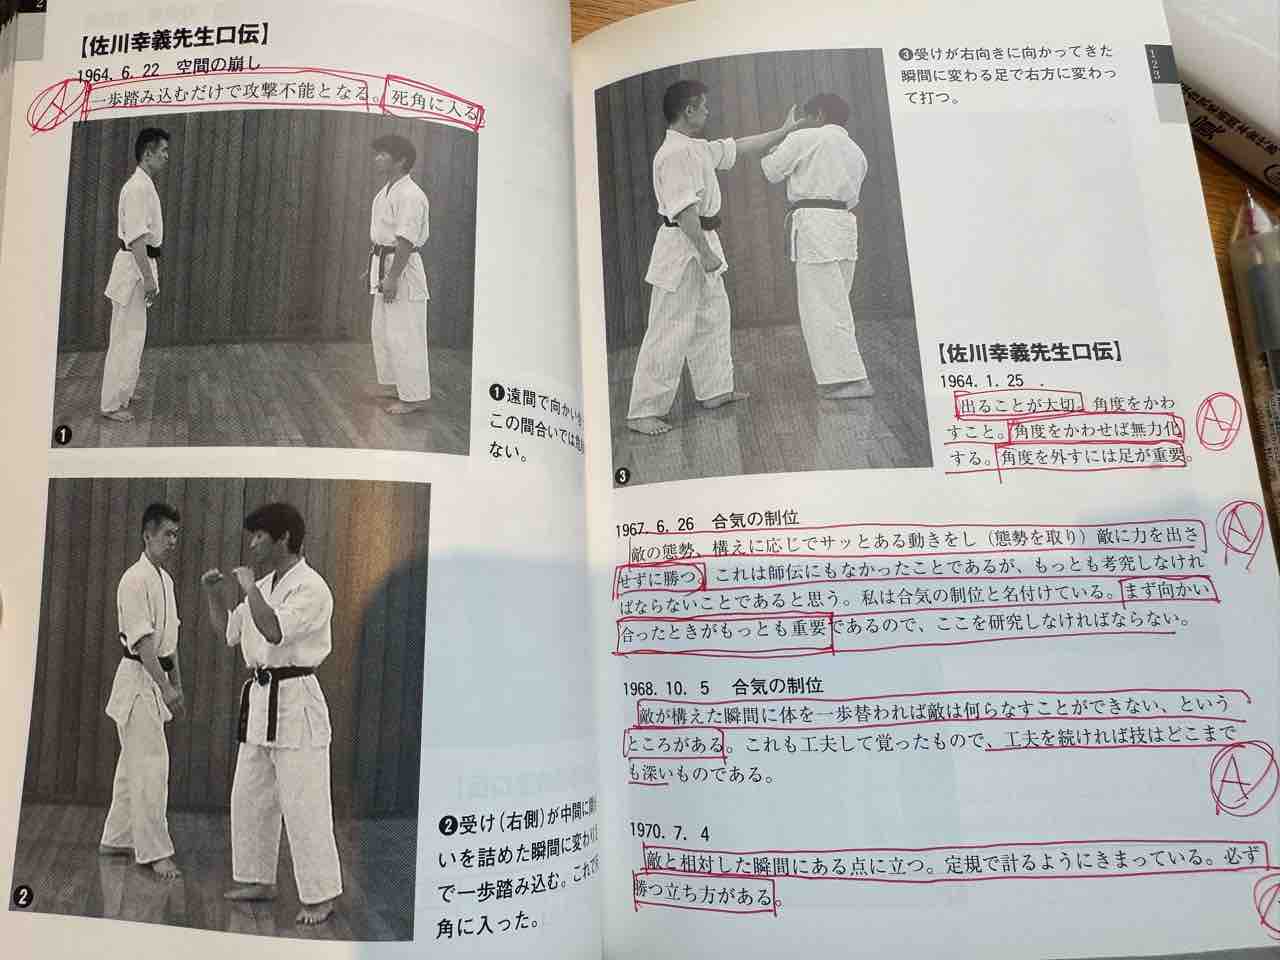 【佐川幸義先生口伝】
1964. 6. 22 空間の崩し
一歩踏み込むだけで攻撃不能となる。死角に入る
A
❶
❶遠間で向かい
この間合いでは
ない。
❷
❷受け(右側)が中間に
いを詰めた瞬間に変わり
で一歩踏み込む。これで
角に入った。
❸
❸受けが右向きに向かってきた
瞬間に変わる足で右方に変わっ
て打つ。
123
【佐川幸義先生口伝】
1964. 1. 25
出ることが大切。角度をかわ
すこと。角度をかわせば無力化
する。角度を外すには足が重要。
A
1967. 6. 26 合気の制位
敵の態勢、構えに応じてサッとある動きをし(態勢を取り)敵に力を出さ
せずに勝つ。これは師伝にもなかったことであるが、もっとも考究しなけれ
ばならないことであると思う。私は合気の制位と名付けている。まず向かい
合ったときがもっとも重要であるので、ここを研究しなければならない。
A
1968. 10. 5 合気の制位
敵が構えた瞬間に体を一歩替われば敵は何らなすことができない、という
ところがある。これも工夫して覚ったもので、工夫を続ければ技はどこまで
も深いものである。
A
1970. 7. 4
敵と相対した瞬間にある点に立つ。定規で計るようにきまっている。必ず
勝つ立ち方がある。